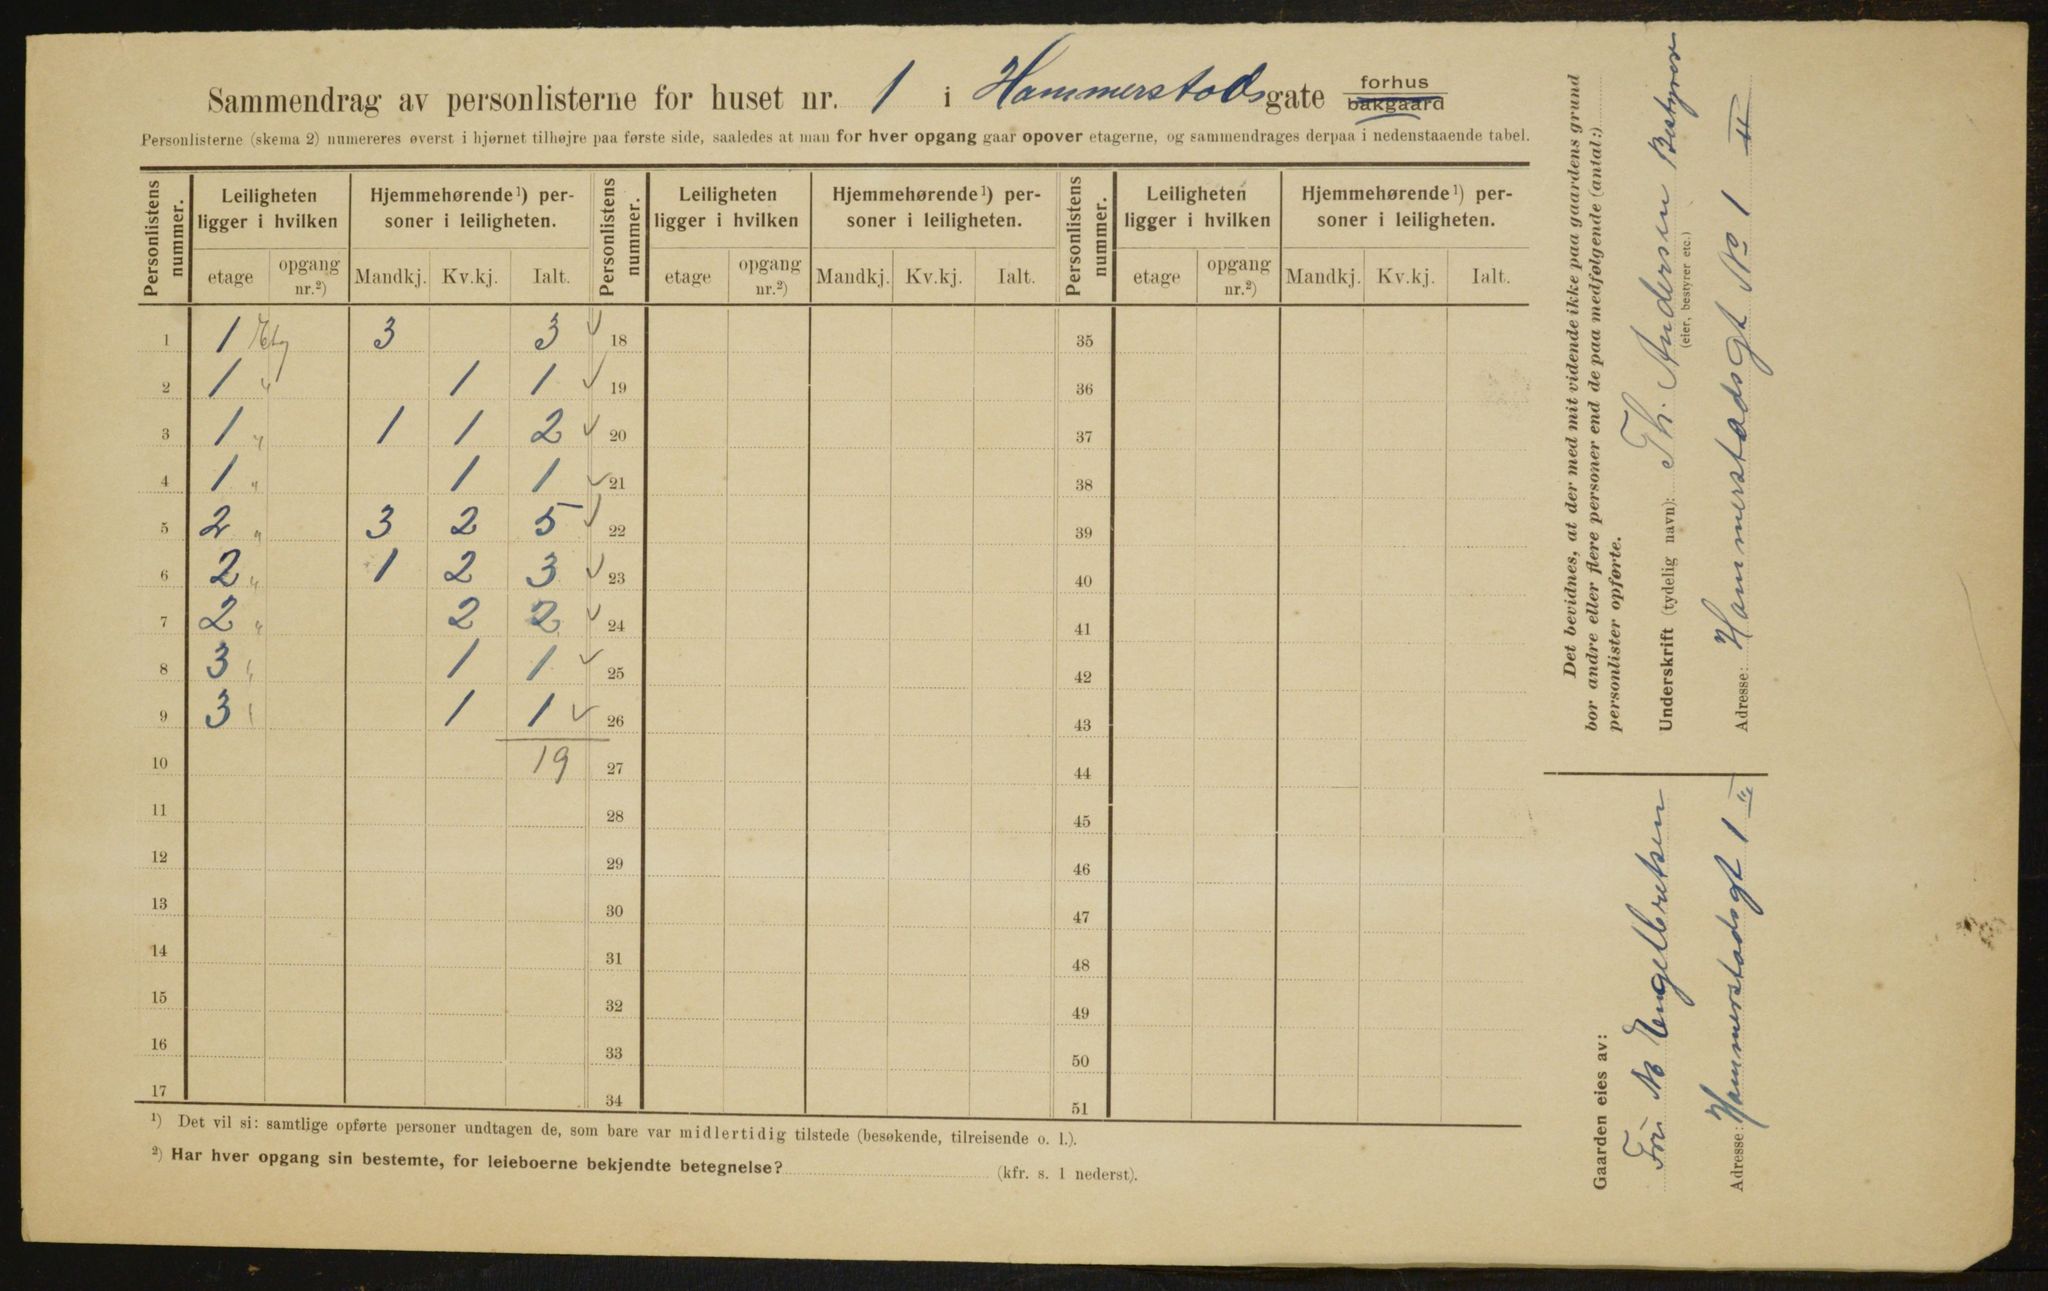 Sammendrag av personlisterne for huset nr. 1 i Hammerstadsgate forhus bakgaard
Personlisterne (skema 2) numereres øverst i hjørnet tilhøjre paa første side, saaledes at man for hver opgang gaar opover etagerne, og sammendrages derpaa i nedenstaaende tabel.
Personlistens nummer. Leiligheten ligger i hvilken Hjemmehørende¹) personer i leiligheten. Personlistens nummer. Leiligheten ligger i hvilken Hjemmehørende¹) personer i leiligheten. Personlistens nummer. Leiligheten ligger i hvilken Hjemmehørende¹) personer i leiligheten.
etage opgang nr.²) Mandkj. Kv.kj. Ialt. etage opgang nr.²) Mandkj. Kv.kj. Ialt. etage opgang nr.²) Mandkj. Kv.kj. Ialt.
1 1 Etg 3 3 ✓ 18 35
2 1 " 1 1 ✓ 19 36
3 1 " 1 1 2 ✓ 20 37
4 1 " 1 1 ✓ 21 38
5 2 " 3 2 5 ✓ 22 39
6 2 " 1 2 3 ✓ 23 40
7 2 " 2 2 ✓ 24 41
8 3 " 1 1 ✓ 25 42
9 3 " 1 1 ✓ 26 43
10 19 27 44
11 28 45
12 29 46
13 30 47
14 31 48
15 32 49
16 33 50
17 34 51
¹) Det vil si: samtlige opførte personer undtagen de, som bare var midlertidig tilstede (besøkende, tilreisende o. l.).
²) Har hver opgang sin bestemte, for leieboerne bekjendte betegnelse? (kfr. s. 1 nederst).
Det bevidnes, at der med mit vidende ikke paa gaardens grund
bor andre eller flere personer end de paa medfølgende (antal:)
personlister opførte.
Underskrift (tydelig navn): Th. Andersen Bestyrer
(eier, bestyrer etc.)
Adresse: Hammerstadsgt No 1 II
Gaarden eies av:
Engelbretsen
Adresse: Hammerstadsgt 1